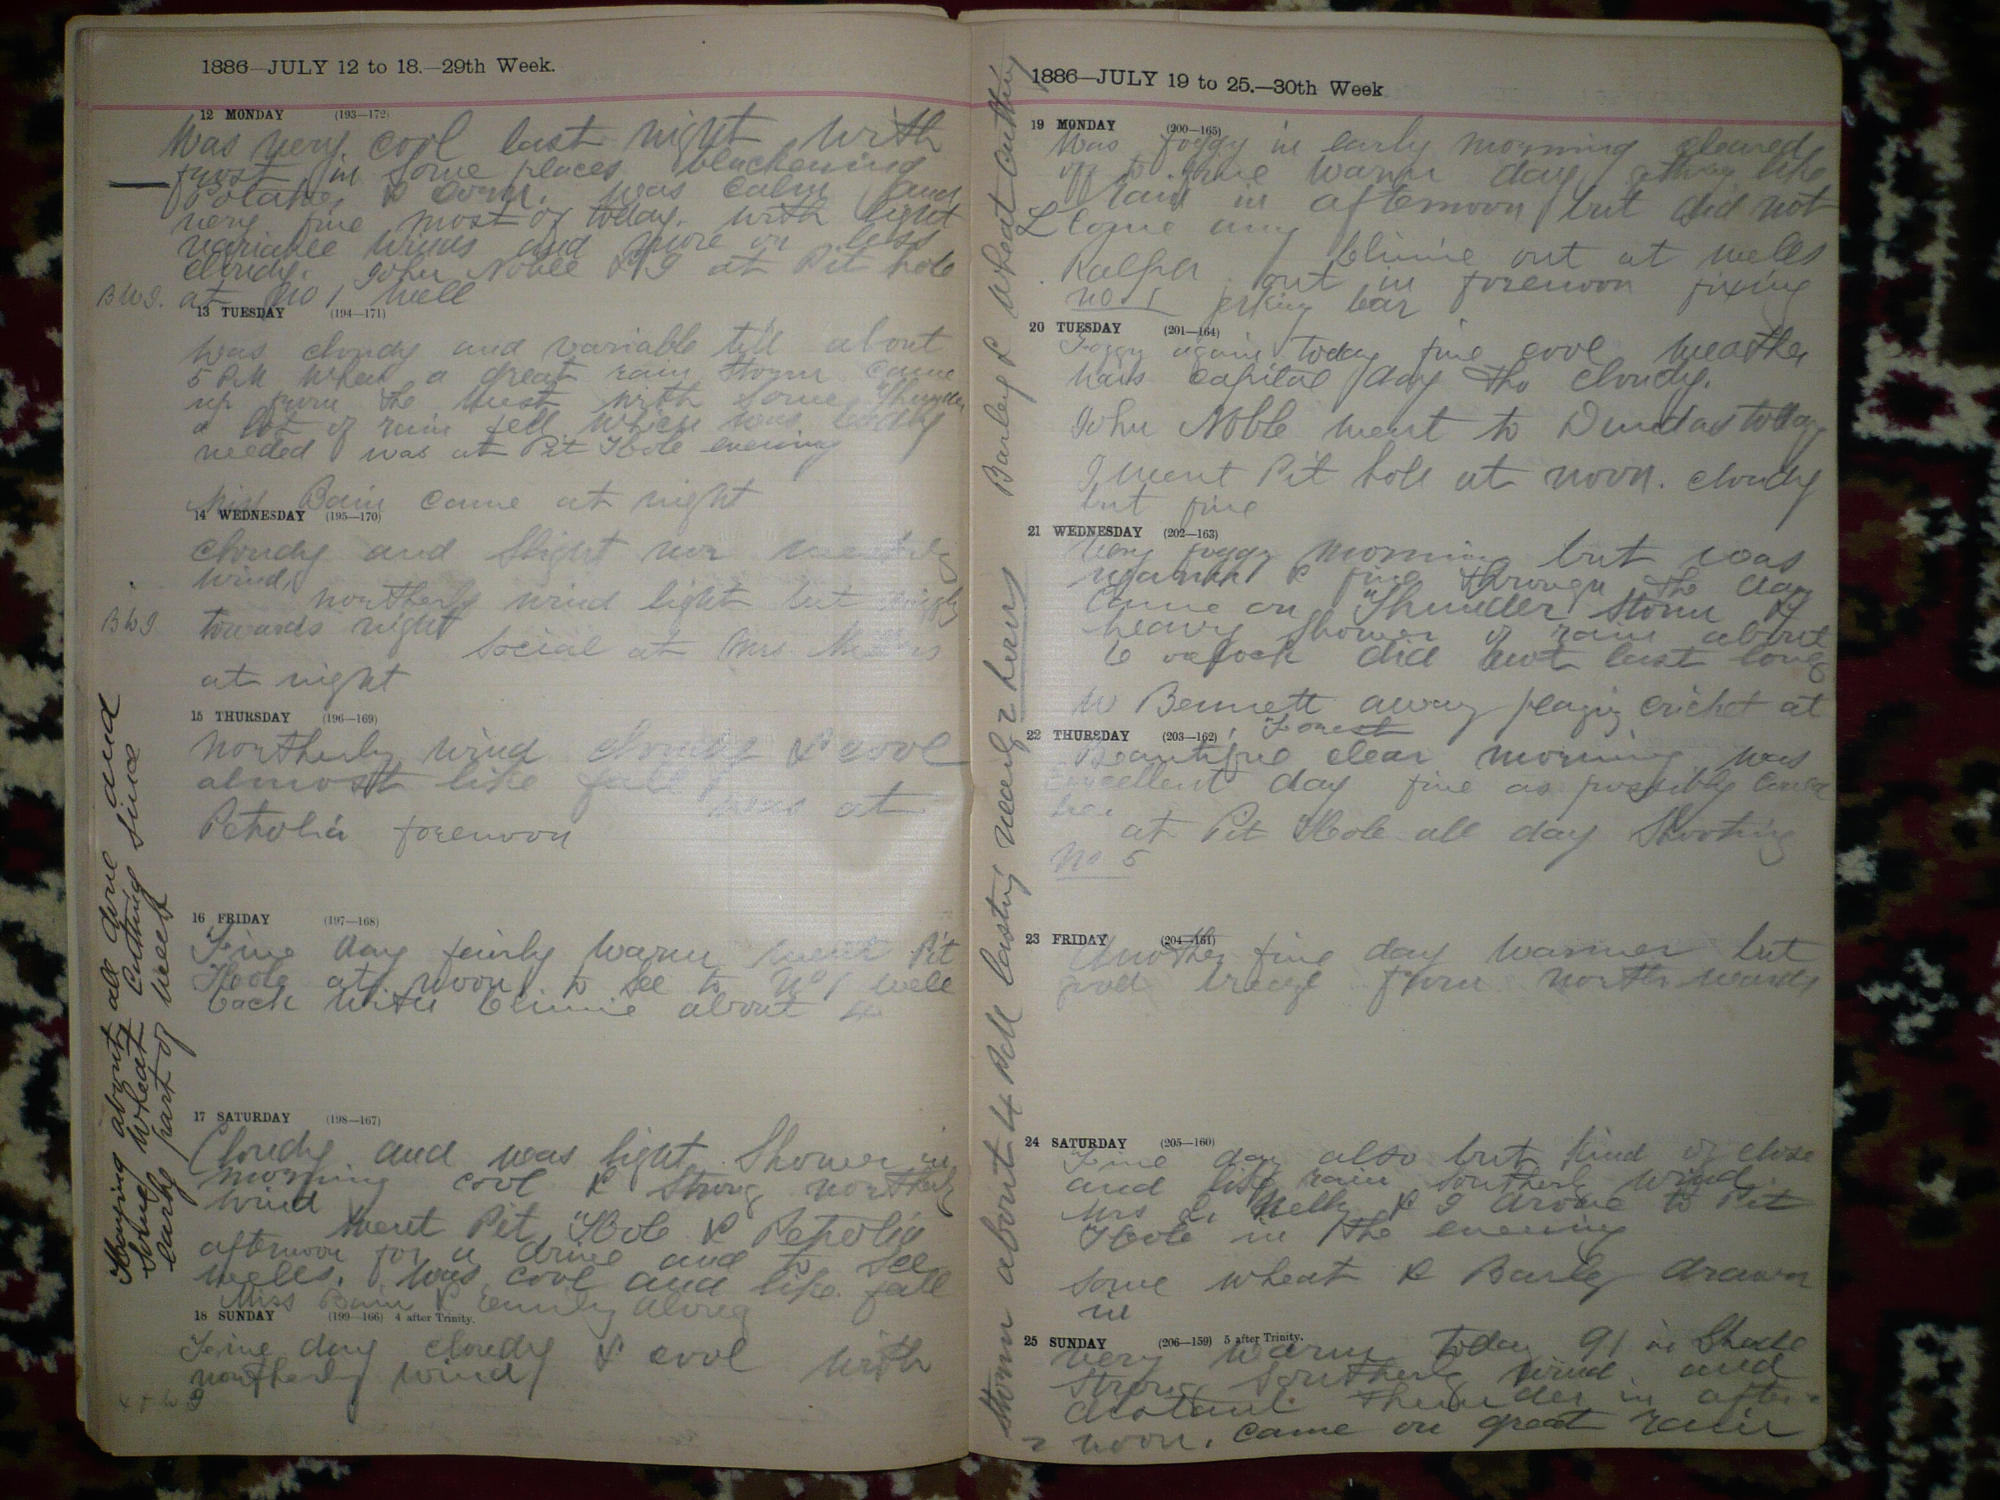 1886—JULY 12 to 18.—29th Week.
12 MONDAY (193—172)
Was very cool last night with
frost in some places blackening
Potatoes & corn. was calm and
very fine most of today. with light
variable winds and more or less
cloudy. John Noble & I at Pit hole
at No 1 well
13 TUESDAY (194—171)
was cloudy and variable till about
5 PM when a great rain storm came
up from the West with some Thunder
a lot of rain fell which was badly
needed was at Pit Hole evening
Miss Bain came at night
14 WEDNESDAY (195—170)
cloudy and slight nor
wind,
northerly wind light but
towards night
Social at Mrs
at night
15 THURSDAY (196—169)
Northerly wind cloudy & cool
almost like fall
was at
Petrolia forenoon
16 FRIDAY (197—168)
Fine day fairly warm went Pit
Hole at noon to see to No 1 well
back with Climie about
17 SATURDAY (198—167)
Cloudy and was light Shower in
morning cool & strong northerly
wind
went Pit Hole & Petrolia
afternoon for a drive and to see
wells. was cool and like fall
Miss Bain & Emily along
18 SUNDAY (199—166) 4 after Trinity.
Fine day cloudy & cool with
northerly wind
Haying about all done and
some wheat cutting since
early part of week
1886—JULY 19 to 25.—30th Week
19 MONDAY (200—165)
Was foggy in early morning cleared
off to fine warm day, like
Rain in afternoon but did not
come any
Ralph Climie out at wells
out in forenoon fixing
No. 1 jerking bar
20 TUESDAY (201—164)
Foggy again today fine cool weather
was capital day tho cloudy.
John Noble went to Dundas today
I went Pit hole at noon. cloudy
but fine
21 WEDNESDAY (202—163)
Very foggy morning but was
warm & fine through the day
came on Thunder Storm &
heavy shower of rain about
6 oclock did not last long
W Bennett away playing cricket at
Forest
22 THURSDAY (203—162)
Beautiful clear morning was
Excellent day fine as possibly could
be
at Pit Hole all day Shooting
No 5
23 FRIDAY (204—161)
Another fine day warmer but
good breeze from northwards
24 SATURDAY (205—160)
Fine day also but kind of close
and like rain southerly wind
Mrs Nelly & I drove to Pit
Hole in the evening
some wheat & Barley drawn
in
25 SUNDAY (206—159) 5 after Trinity.
very warm today 91 in Shade
strong Southerly wind and
distant Thunder in after-
noon. came on great rain
storm about 4 PM lasting nearly 2 hours
Barley & wheat cutting